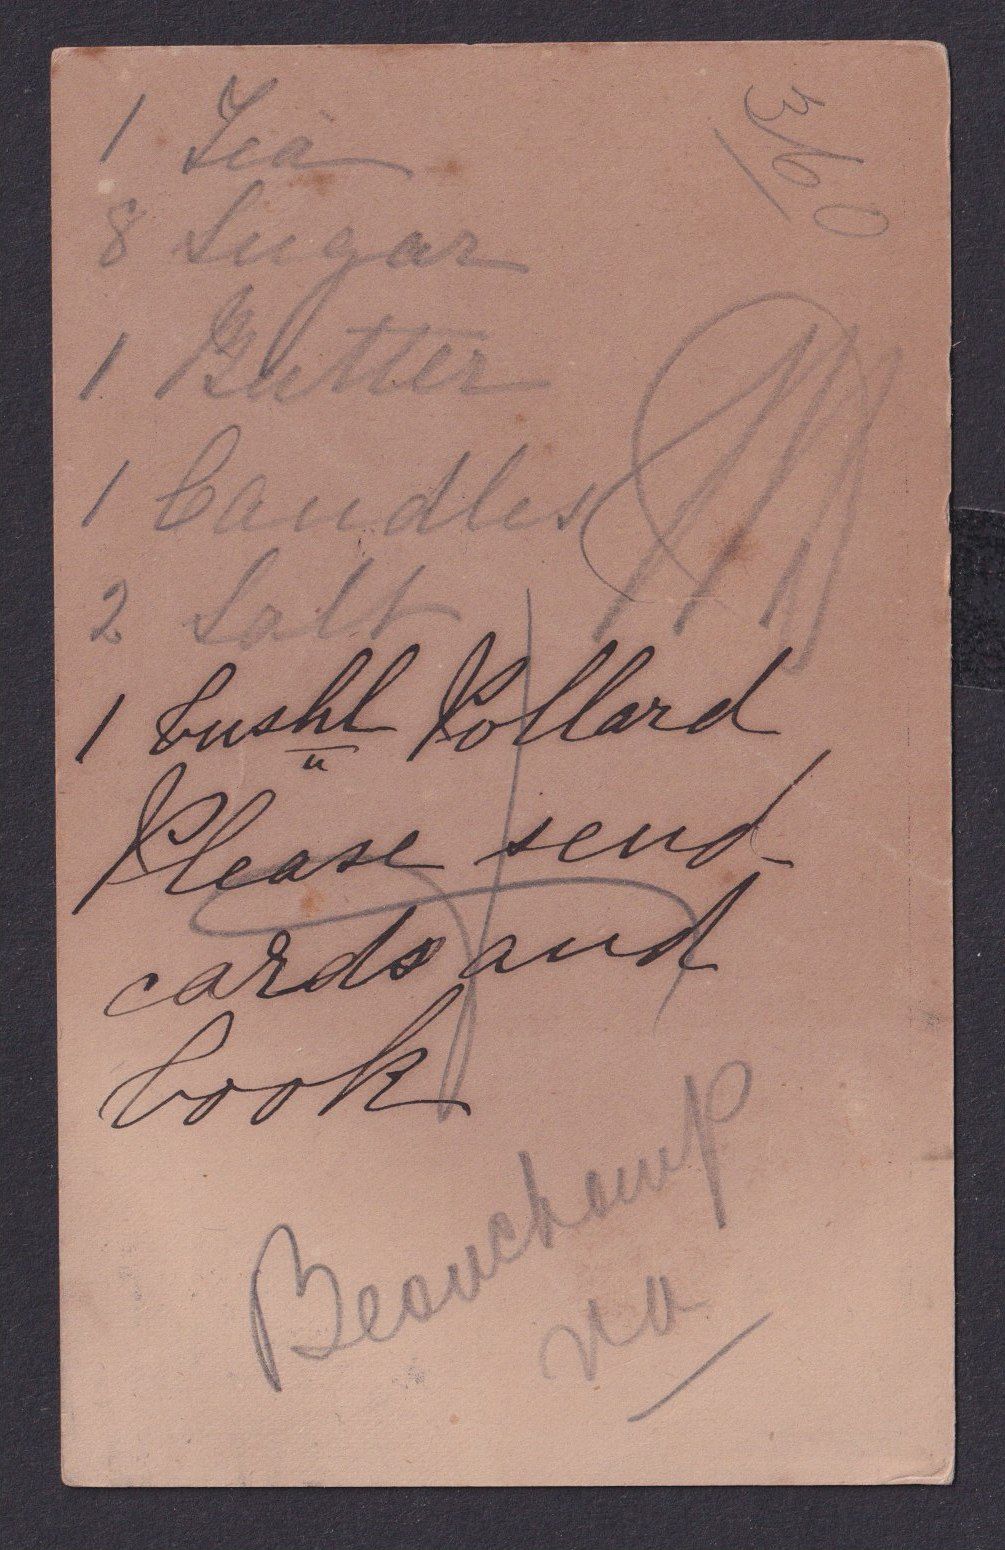 1 Tea
8 Sugar
1 Butter
1 Candles
2 Salt
1 bushl Pollard
Please send
cards and
book
Beauchamp